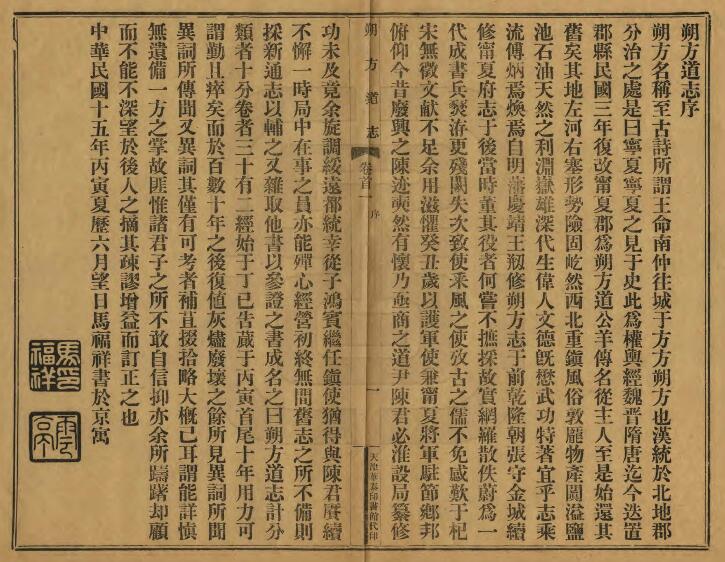 朔方道志序
朔方名稱至古詩所謂王命南仲往城于方方朔方也漢統於北地郡
分治之處是曰寧夏寧夏之見于史此爲權輿經魏晉隋唐迄今迭置
郡縣民國三年復改甯夏郡爲朔方道公羊傳名從主人至是始還其
舊矣其地左河右塞形勢險固屹然西北重鎭風俗敦龎物產闐溢鹽
池石油天然之利淵嶽雄深代生偉人文德旣懋武功特著宜乎志乘
流傳炳焉煥焉自明藩慶靖王剏修朔方志于前乾隆朝張守金城續
修甯夏府志于後當時董其役者何嘗不摭採故實網羅散佚蔚爲一
代成書兵燹洊更殘闕失次致使釆風之使攷古之儒不免感歎于杞
宋無徵文獻不足余用滋懼癸丑歲以護軍使兼甯夏將軍駐節鄉邦
俯仰今昔廢興之陳迹奭然有懷乃亟商之道尹陳君必淮設局纂修
朔方道志
卷首一
序
一
天津華泰印書館代印
功未及竟余旋調綏遠都統幸從子鴻賓繼任鎭使猶得與陳君賡續
不懈一時局中在事之員亦能殫心經營初終無間舊志之所不備則
採新通志以輔之又雜取他書以參證之書成名之曰朔方道志計分
類者十分卷者三十有二經始于丁巳告蕆于丙寅首尾十年用力可
謂勤且瘁矣而於百數十年之後復値灰燼廢壞之餘所見異詞所聞
異詞所傳聞又異詞其僅有可考者補苴掇拾略大槪已耳謂能詳愼
無遺備一方之掌故匪惟諸君子之所不敢自信抑亦余所躊躇却顧
而不能不深望於後人之摘其疎謬增益而訂正之也
中華民國十五年丙寅夏歷六月望日馬福祥書於京寓
馬福祥印
雲亭